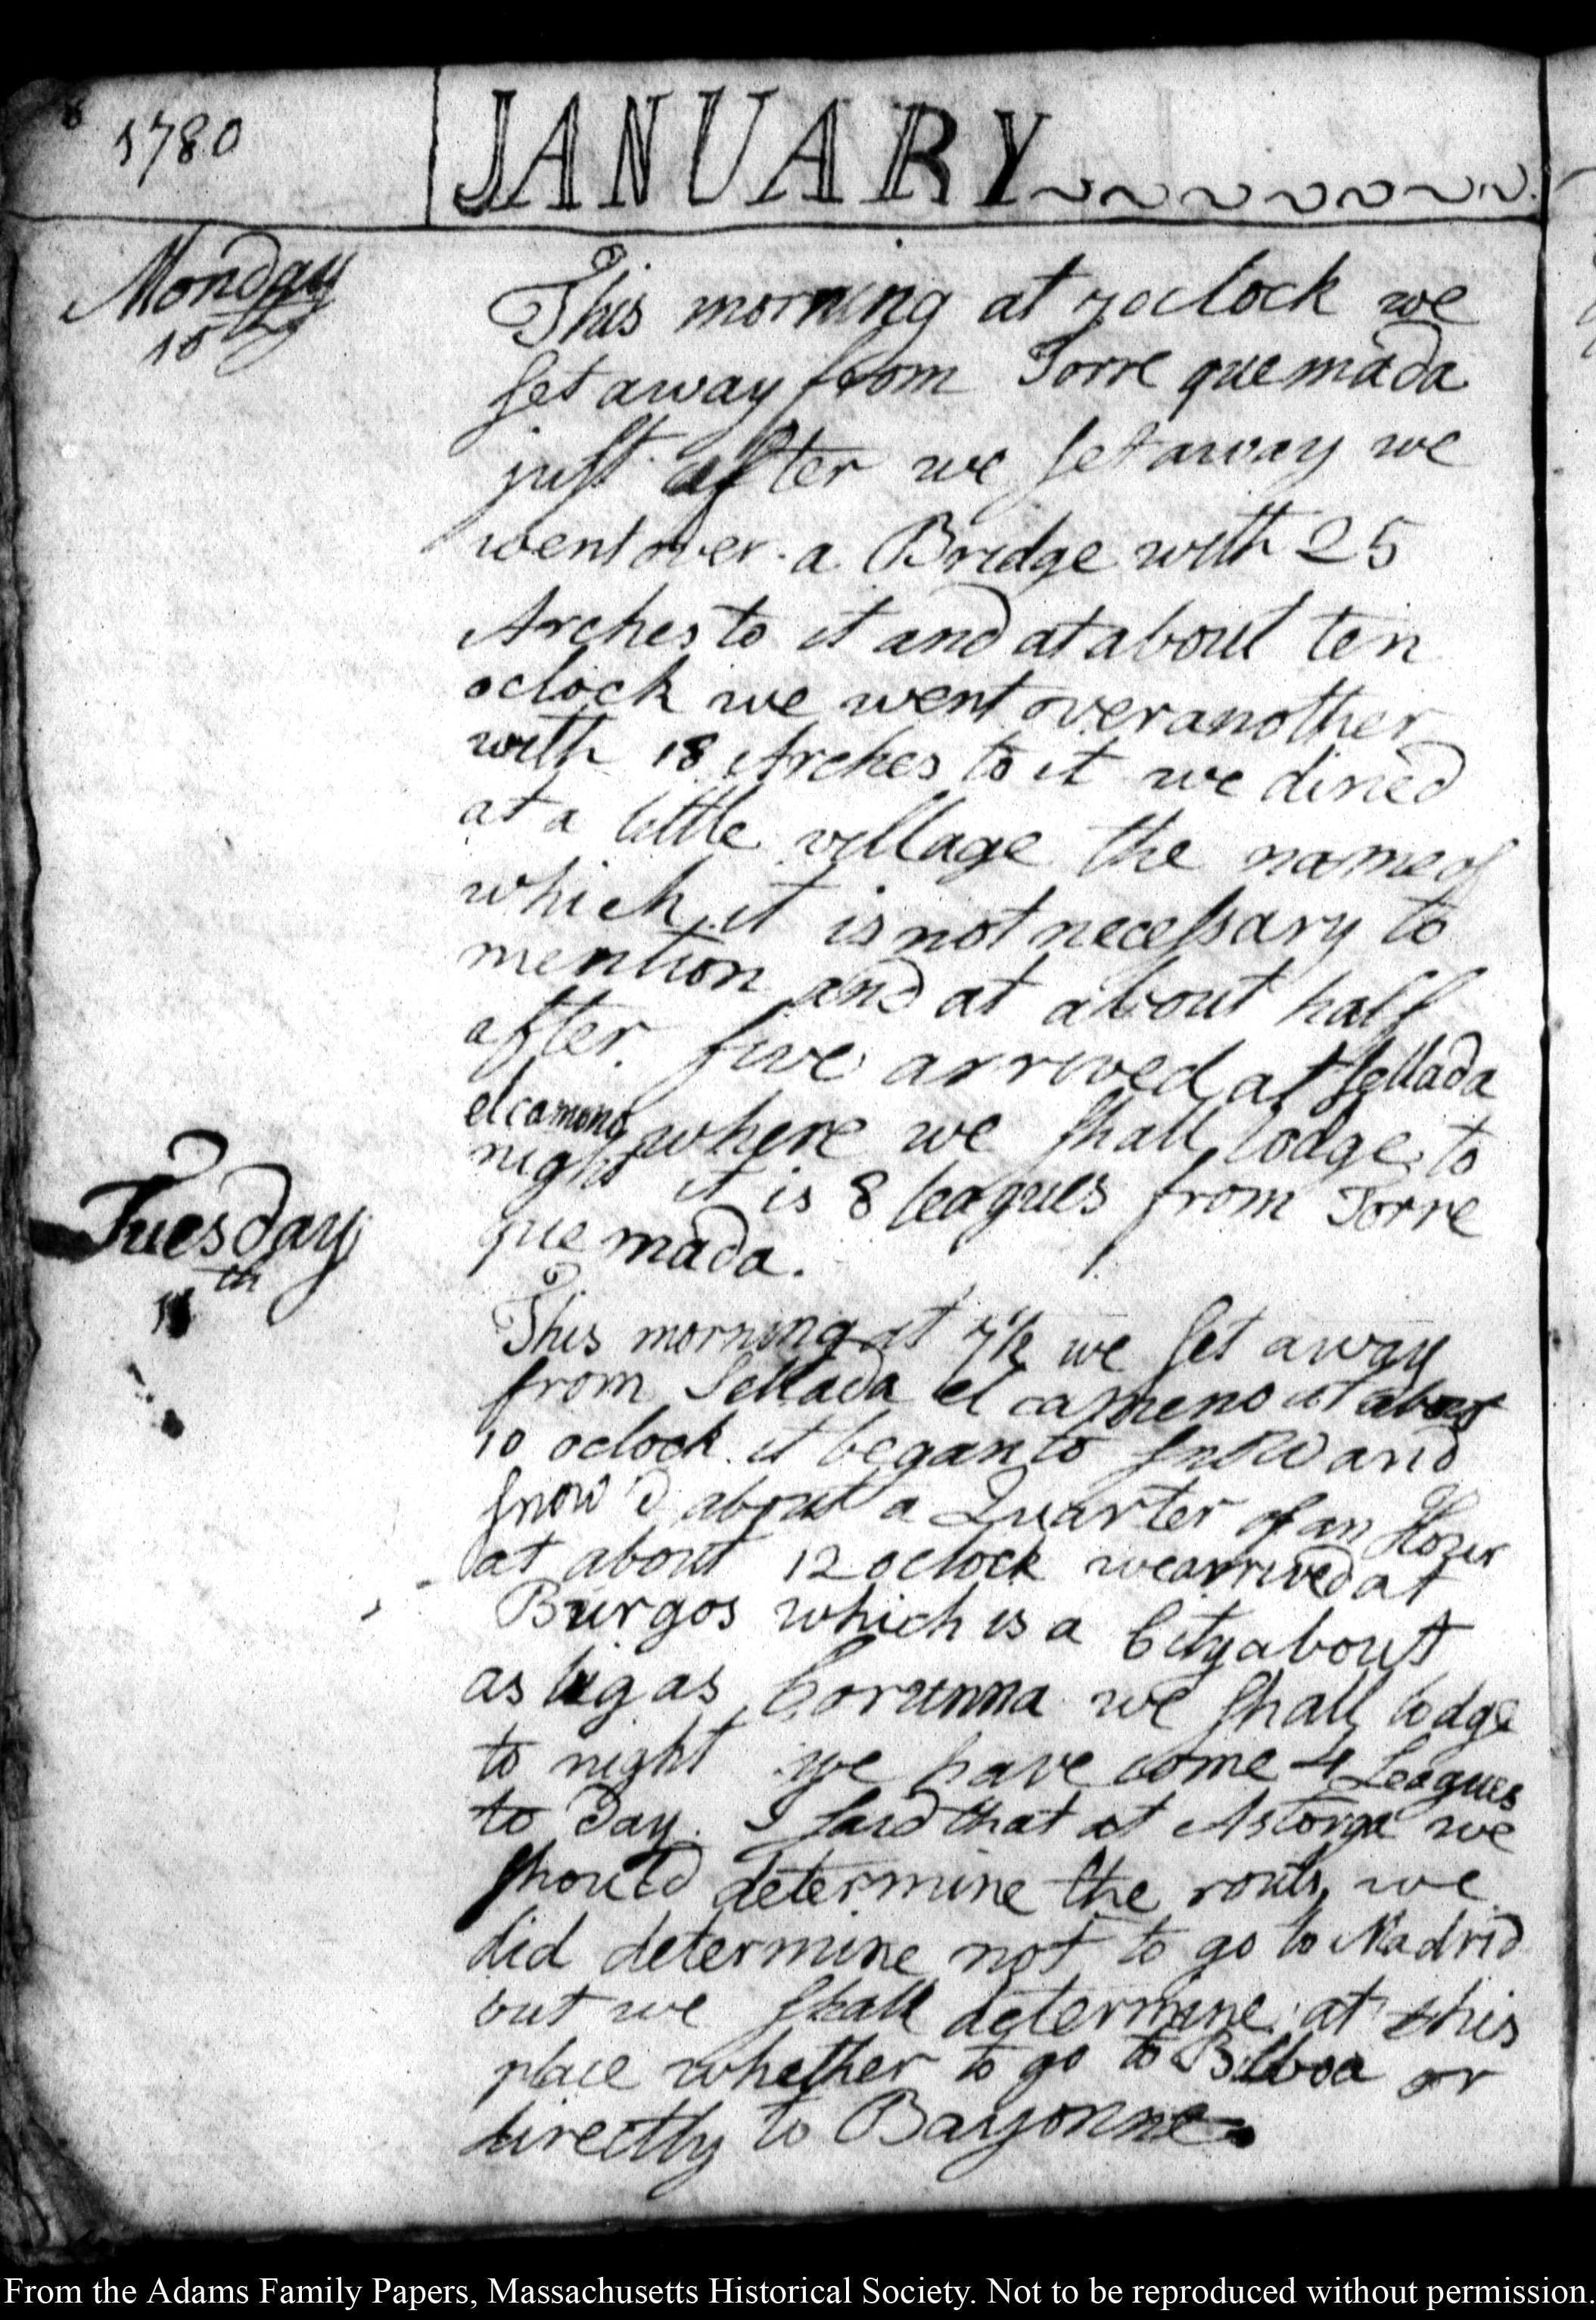 8 1780
JANUARY
Monday
10th
This morning at 7 oclock we
set away from Torre quemada
just after we set away we
went over a Bridge with 25
Arches to it and at about ten
oclock we went over another
with 18 Arches to it we dined
at a little village the name of
which it is not necessary to
mention and at about half
after five arrived at Sellada
el camino where we shall lodge to
night it is 8 leagues from Torre
que mada.
Tuesday
11th
This morning at 7 1/2 we set away
from Sellada el cameno at about
10 oclock it began to snow and
snow'd about a Quarter of an Hour
at about 12 oclock we arrived at
Burgos which is a City about
as big as Corunna we shall lodge
to night we have come 4 Leagues
to Day. I said that at Astorga we
should determine the route, we
did determine not to go to Madrid
but we shall determine at this
place whether to go to Bilboa or
directly to Bayonne.
From the Adams Family Papers, Massachusetts Historical Society. Not to be reproduced without permission.